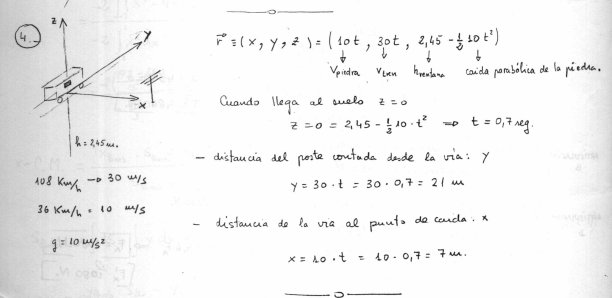 4.-
z
y
x
0
h = 2,45 m.
108 Km/h → 30 m/s
36 Km/h = 10 m/s
g = 10 m/s²
r⃗ ≡ (x, y, z) = (10t, 30t, 2,45 - ½ 10 t²)
↓ ↓ ↓ ↓
Vpiedra Vtren hventana caída parabólica de la piedra.
Cuando llega al suelo z = 0
z = 0 = 2,45 - ½ 10 · t² ⇒ t = 0,7 seg.
- distancia del poste contada desde la vía: y
y = 30 · t = 30 · 0,7 = 21 m
- distancia de la vía al punto de caída. x
x = 10 · t = 10 · 0,7 = 7 m.